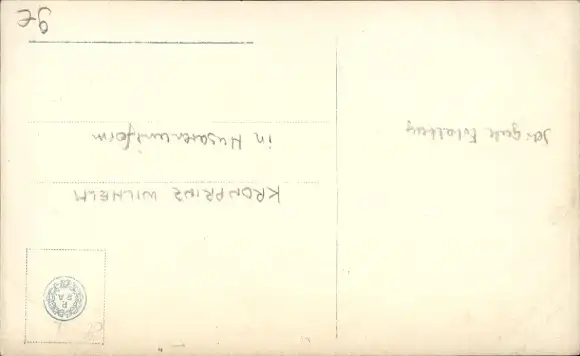 KRONPRINZ WILHELM
in Husarenuniform
sehr gute Erhaltung
R
P.A.